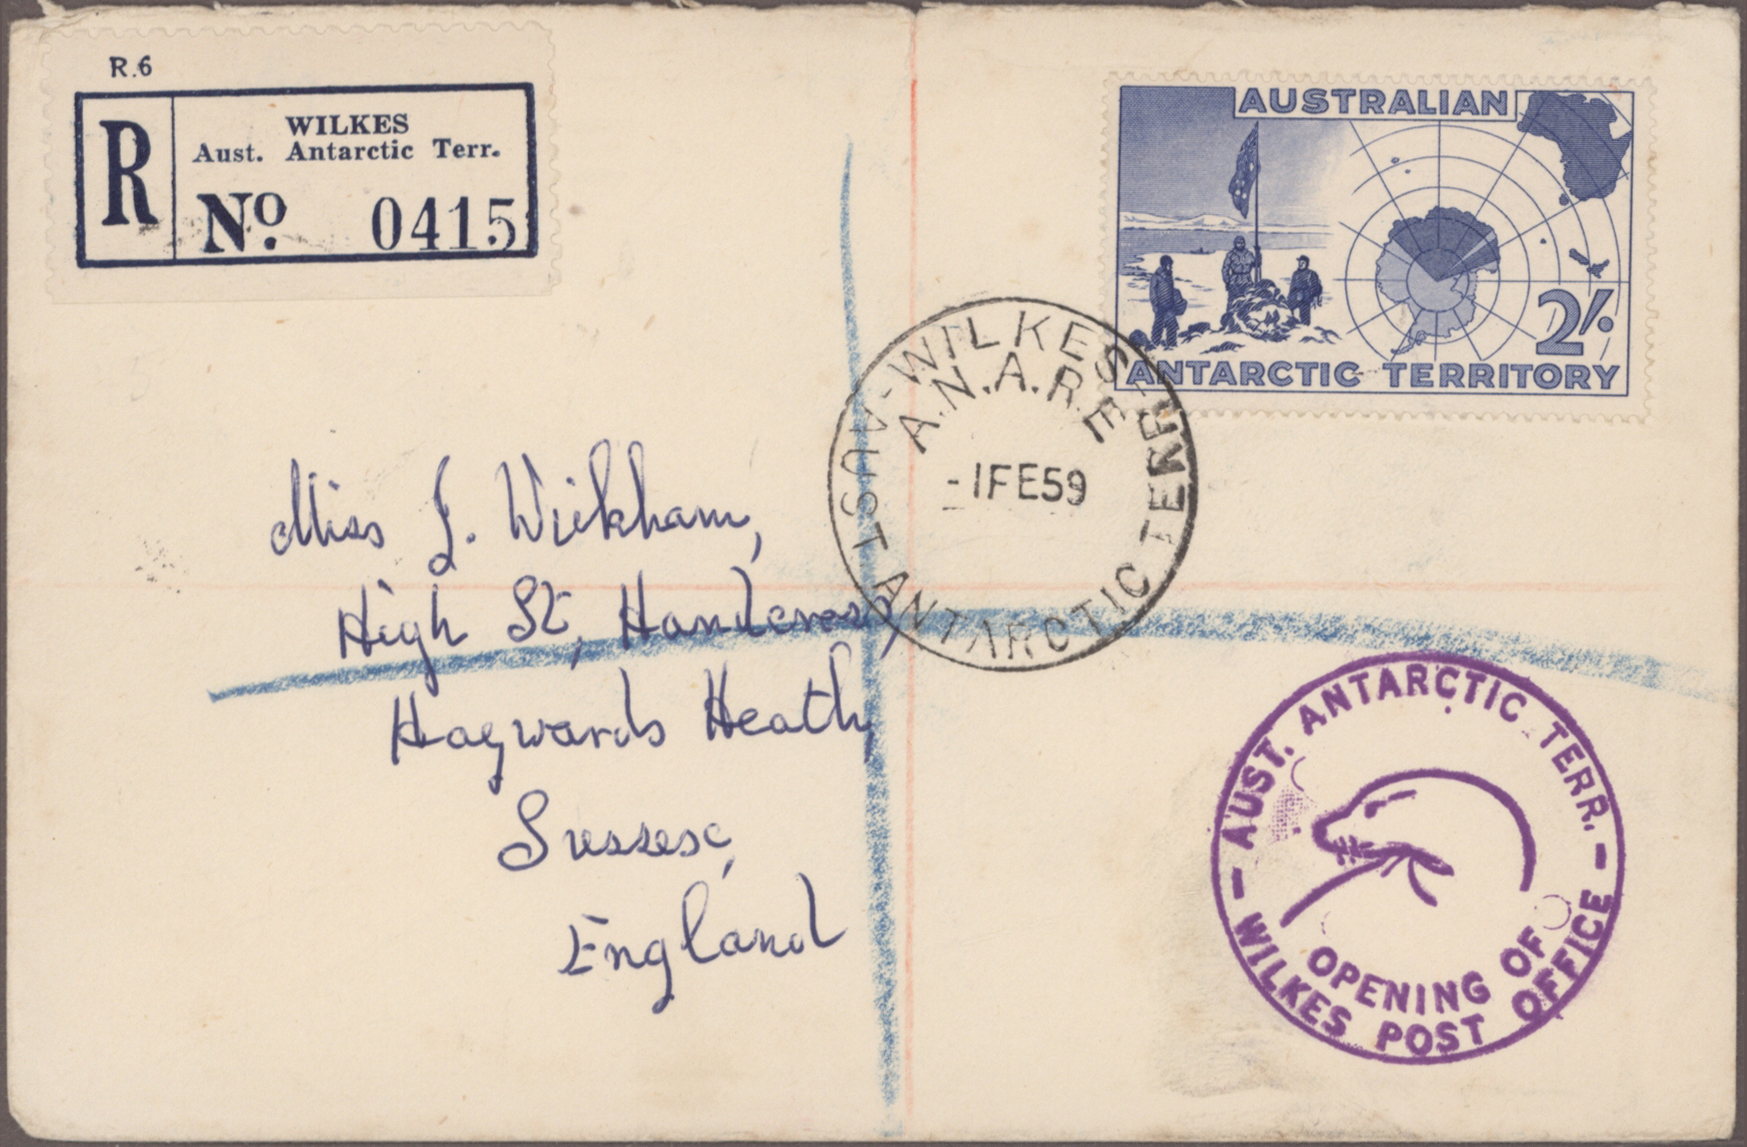 R.6
R
WILKES
Aust. Antarctic Terr.
No. 0415
AUSTRALIAN
2/-
ANTARCTIC TERRITORY
WILKES
A.N.A.R.E
-1FE59
AUST ANTARCTIC TERR
Miss J. Wickham,
High St, Handcross,
Haywards Heath
Sussex,
England
AUST. ANTARCTIC TERR.
OPENING OF
WILKES POST OFFICE